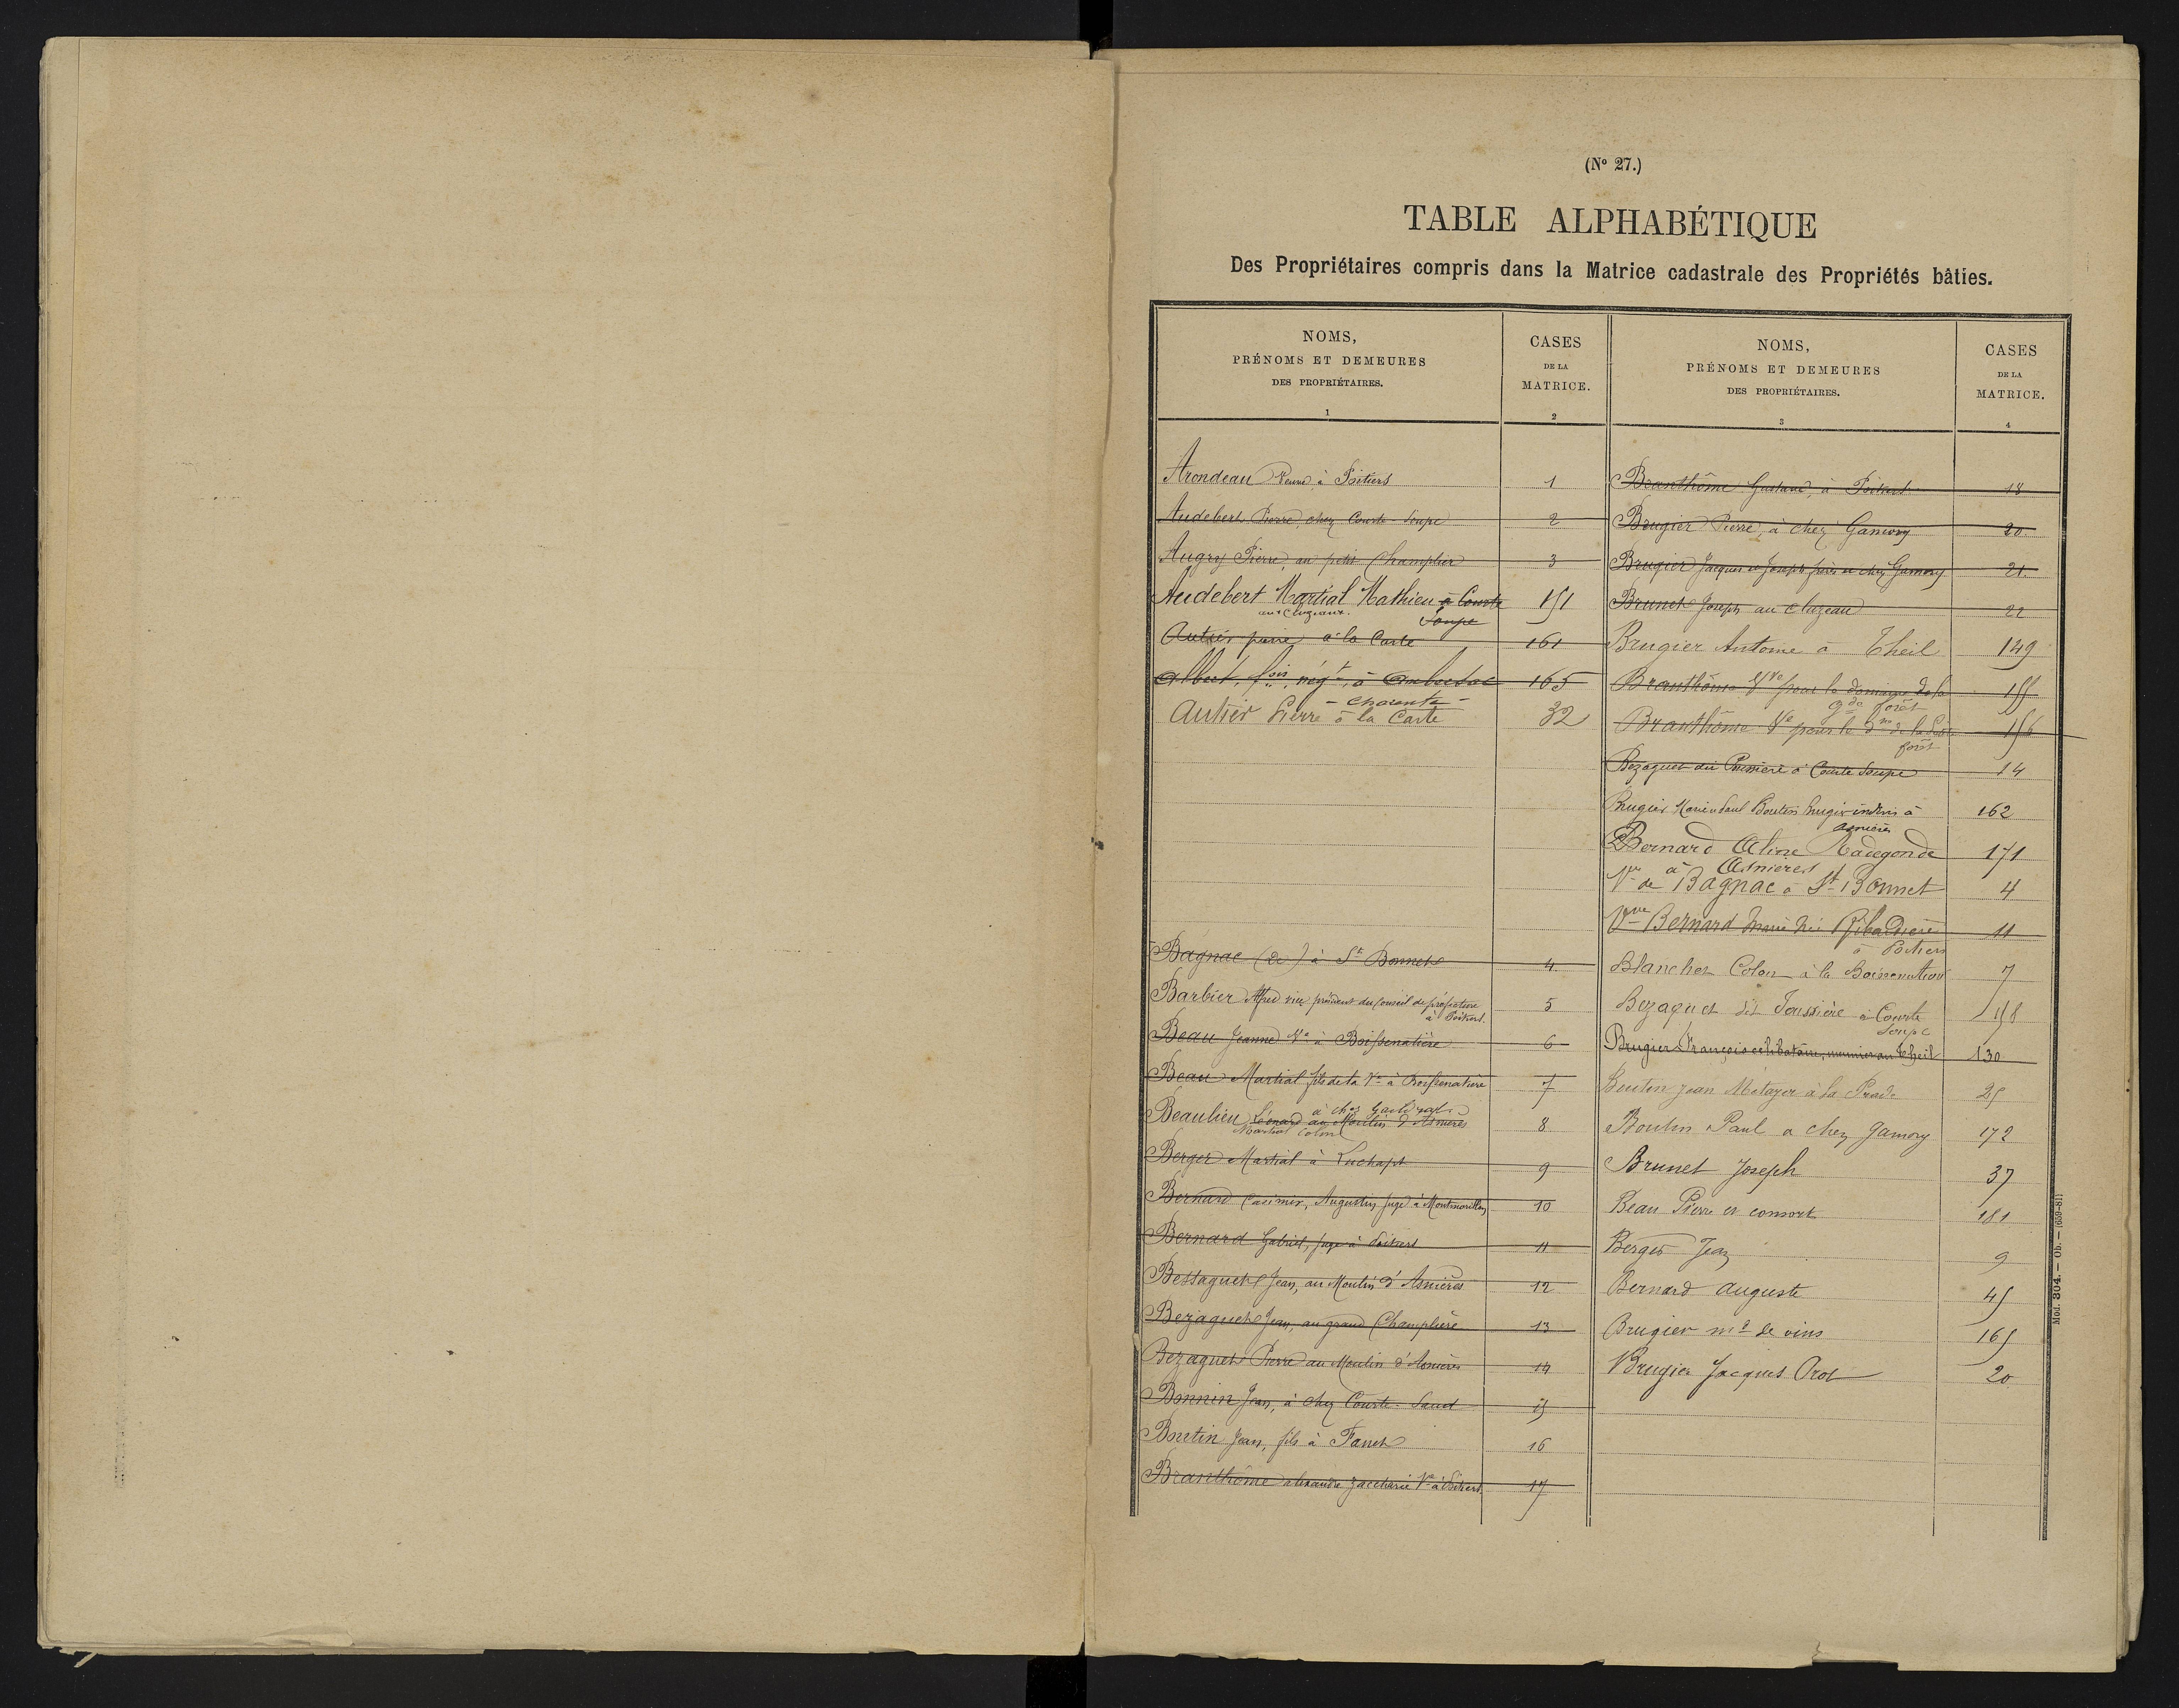 (Nº 27.)
TABLE ALPHABÉTIQUE
Des Propriétaires compris dans la Matrice cadastrale des Propriétés bâties.
NOMS,
PRÉNOMS ET DEMEURES
DES PROPRIÉTAIRES.
1
CASES
DE LA
MATRICE.
2
Arondeau Veuve à Poitiers 1
Audebert Pierre, chez Courte-Soupe 2
Augry Pierre, au petit Champlier 3
Audebert Martial Mathieu à Courte 151
aux Cluzeaux. Soupe
Autier pierre à la Carte 161
Albert, fois, négt, à Ambernac 165
- Charente -
Autier Pierre à la Carte 32
Bagnac (de) à St Bonnet 4
Barbier Alfred vice président du Conseil de préfecture 5
à Poitiers.
Beau Jeanne Ve à Boissenatière 6
Beau Martial fils de la Ve à Boissenatière 7
à chez
Beaulieu Léonard au Moulin d'Asnières 8
Martial Colon
Berger Martial à Luchapt 9
Bernard Casimir, Augustin, juge à Montmorillon 10
Bernard Gabriel, juge à Poitiers 11
Bessaguet Jean, au Moulin d'Asnières 12
Bezaguet Jean, au grand Champlière 13
Bezaguet Pierre au Moulin d'Asnières 14
Bonnin Jean, à chez Courte-Saud 15
Bretin Jean, fils à Fanet 16
Branthôme alexandre Zaccharie Ve à Poitiers 17
NOMS,
PRÉNOMS ET DEMEURES
DES PROPRIÉTAIRES.
3
CASES
DE LA
MATRICE.
4
Branthôme Gustave, à Poitiers 18
Brugier Pierre, à chez Gamory 20
Brugier Jacques et Joseph frères et chez Gamory 21.
Brunet Joseph au Cluzeau 22
Brugier Antoine à Theil 149
Branthôme Vve pour le domaine de la 155
gde forêt
Branthôme Ve pour le dne de la Petite 156
forêt
Bezaguet dit Poussière à Courte Soupe 14
Brugier Marie Paul Boutin Brugier indivis à 162
Asnières
Bernard Aline Radegonde 171
à Asnières
Vve de Bagnac à St-Bonnet 4
Vve Bernard Marie née Ribadière 11
à Poitiers
Blanchet Colon à la Boissenatière 7
Bezaguet dit Poussière à Courte 158
Soupe
Brugier François célibataire, meunier au Theil 130
Bouton Jean Métayer à la Prade 25
Boutin Paul a chez Gamory 172
Brunet Joseph 37
Beau Pierre et consort 181
Berger Jean 9
Bernard Auguste 45
Brugier md de vins 165
Brugier Jacques Prot 20
Mod. 304. — Ob. — (659-81)